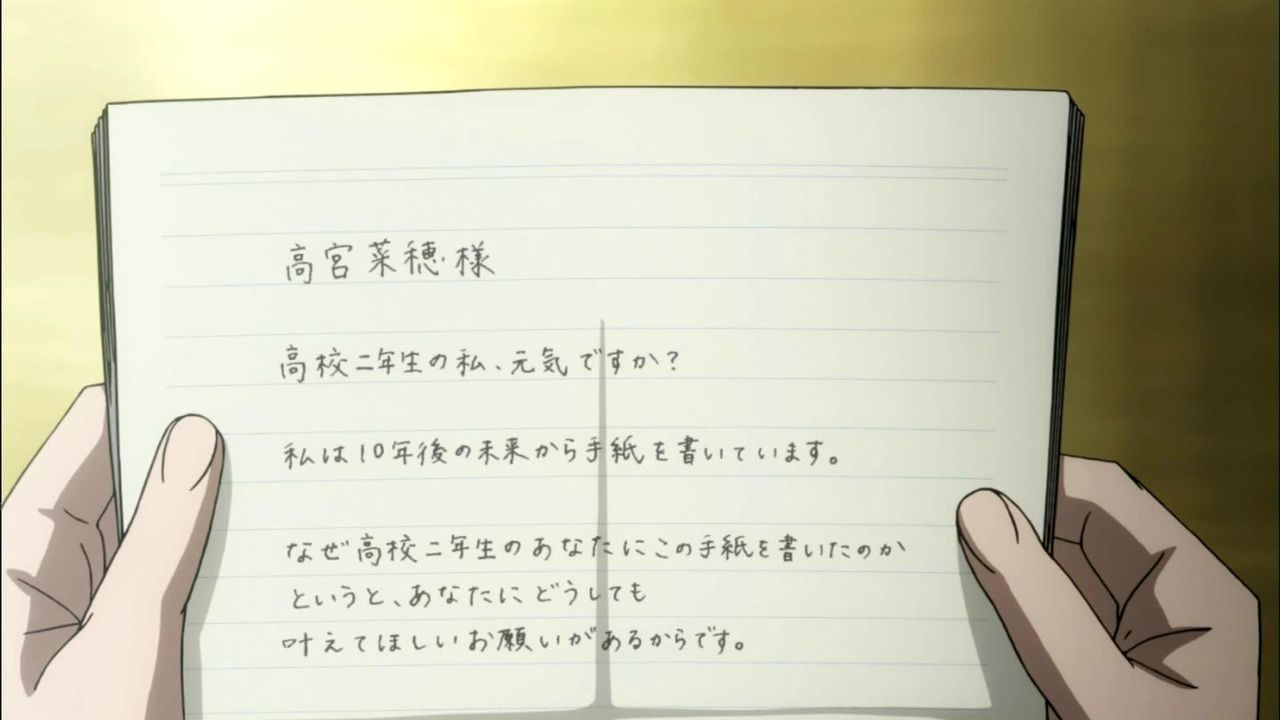 高宮菜穂様
高校二年生の私、元気ですか？
私は10年後の未来から手紙を書いています。
なぜ高校二年生のあなたにこの手紙を書いたのか
というと、あなたにどうしても
叶えてほしいお願いがあるからです。